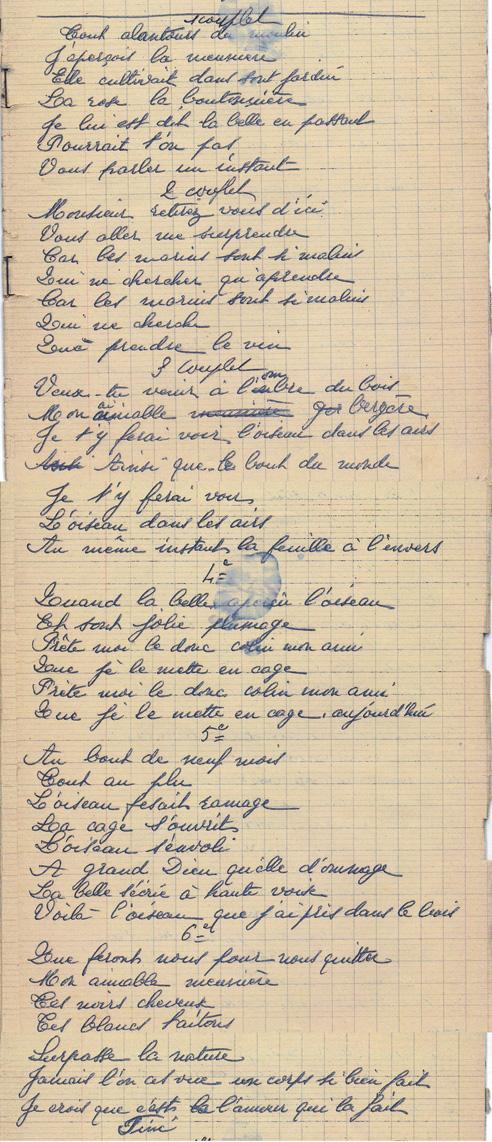 1 couplet
Tout alantours du moulin
J'aperçois la meunière
Elle cultivait dans sont jardin
La rose la boutonnière
Je lui est dit la belle en passant
Pourrait t'on pas
Vous parler un instant
2 couplet
Monsieur retirez vous d'ici
Vous aller me surprendre
Car les marins sont si malins
Qui ne chercher qu'aprendre
Car les marins sont si malins
Qui ne cherche
Que prendre le vin
3 couplet
Veux-tu venir à l'ombre du bois
Mon aimable meunière bergère
Je t'y ferai voir l'oiseau dans les airs
Ainsi que le bout du monde
Je t'y ferai voir
L'oiseau dans les airs
Au même instant la feuille à l'envers
4e
Quand la belle aperçu l'oiseau
Et sont jolie plumage
Prête moi le donc colin mon ami
Que je le mette en cage
Prète moi le donc colin mon ami
Que je le mette en cage, aujourd'hui
5e
Au bout de neuf mois
Tout au plu
L'oiseau fesait ramage
La cage s'ouvrit
L'oiseau s'envoli
A grand Dieu qu'elle d'ommage
La belle s'écrie à haute voix
Voilà l'oiseau que j'ai pris dans le bois
6e
Que feront nous pour nous quitter
Mon aimable meunière
Tes noirs cheveux
Tes blancs taitons
Surpasse la nature
Jamais l'on as vue un corps si bien fait
Je crois que c'est l'amour qui la fait
Fini